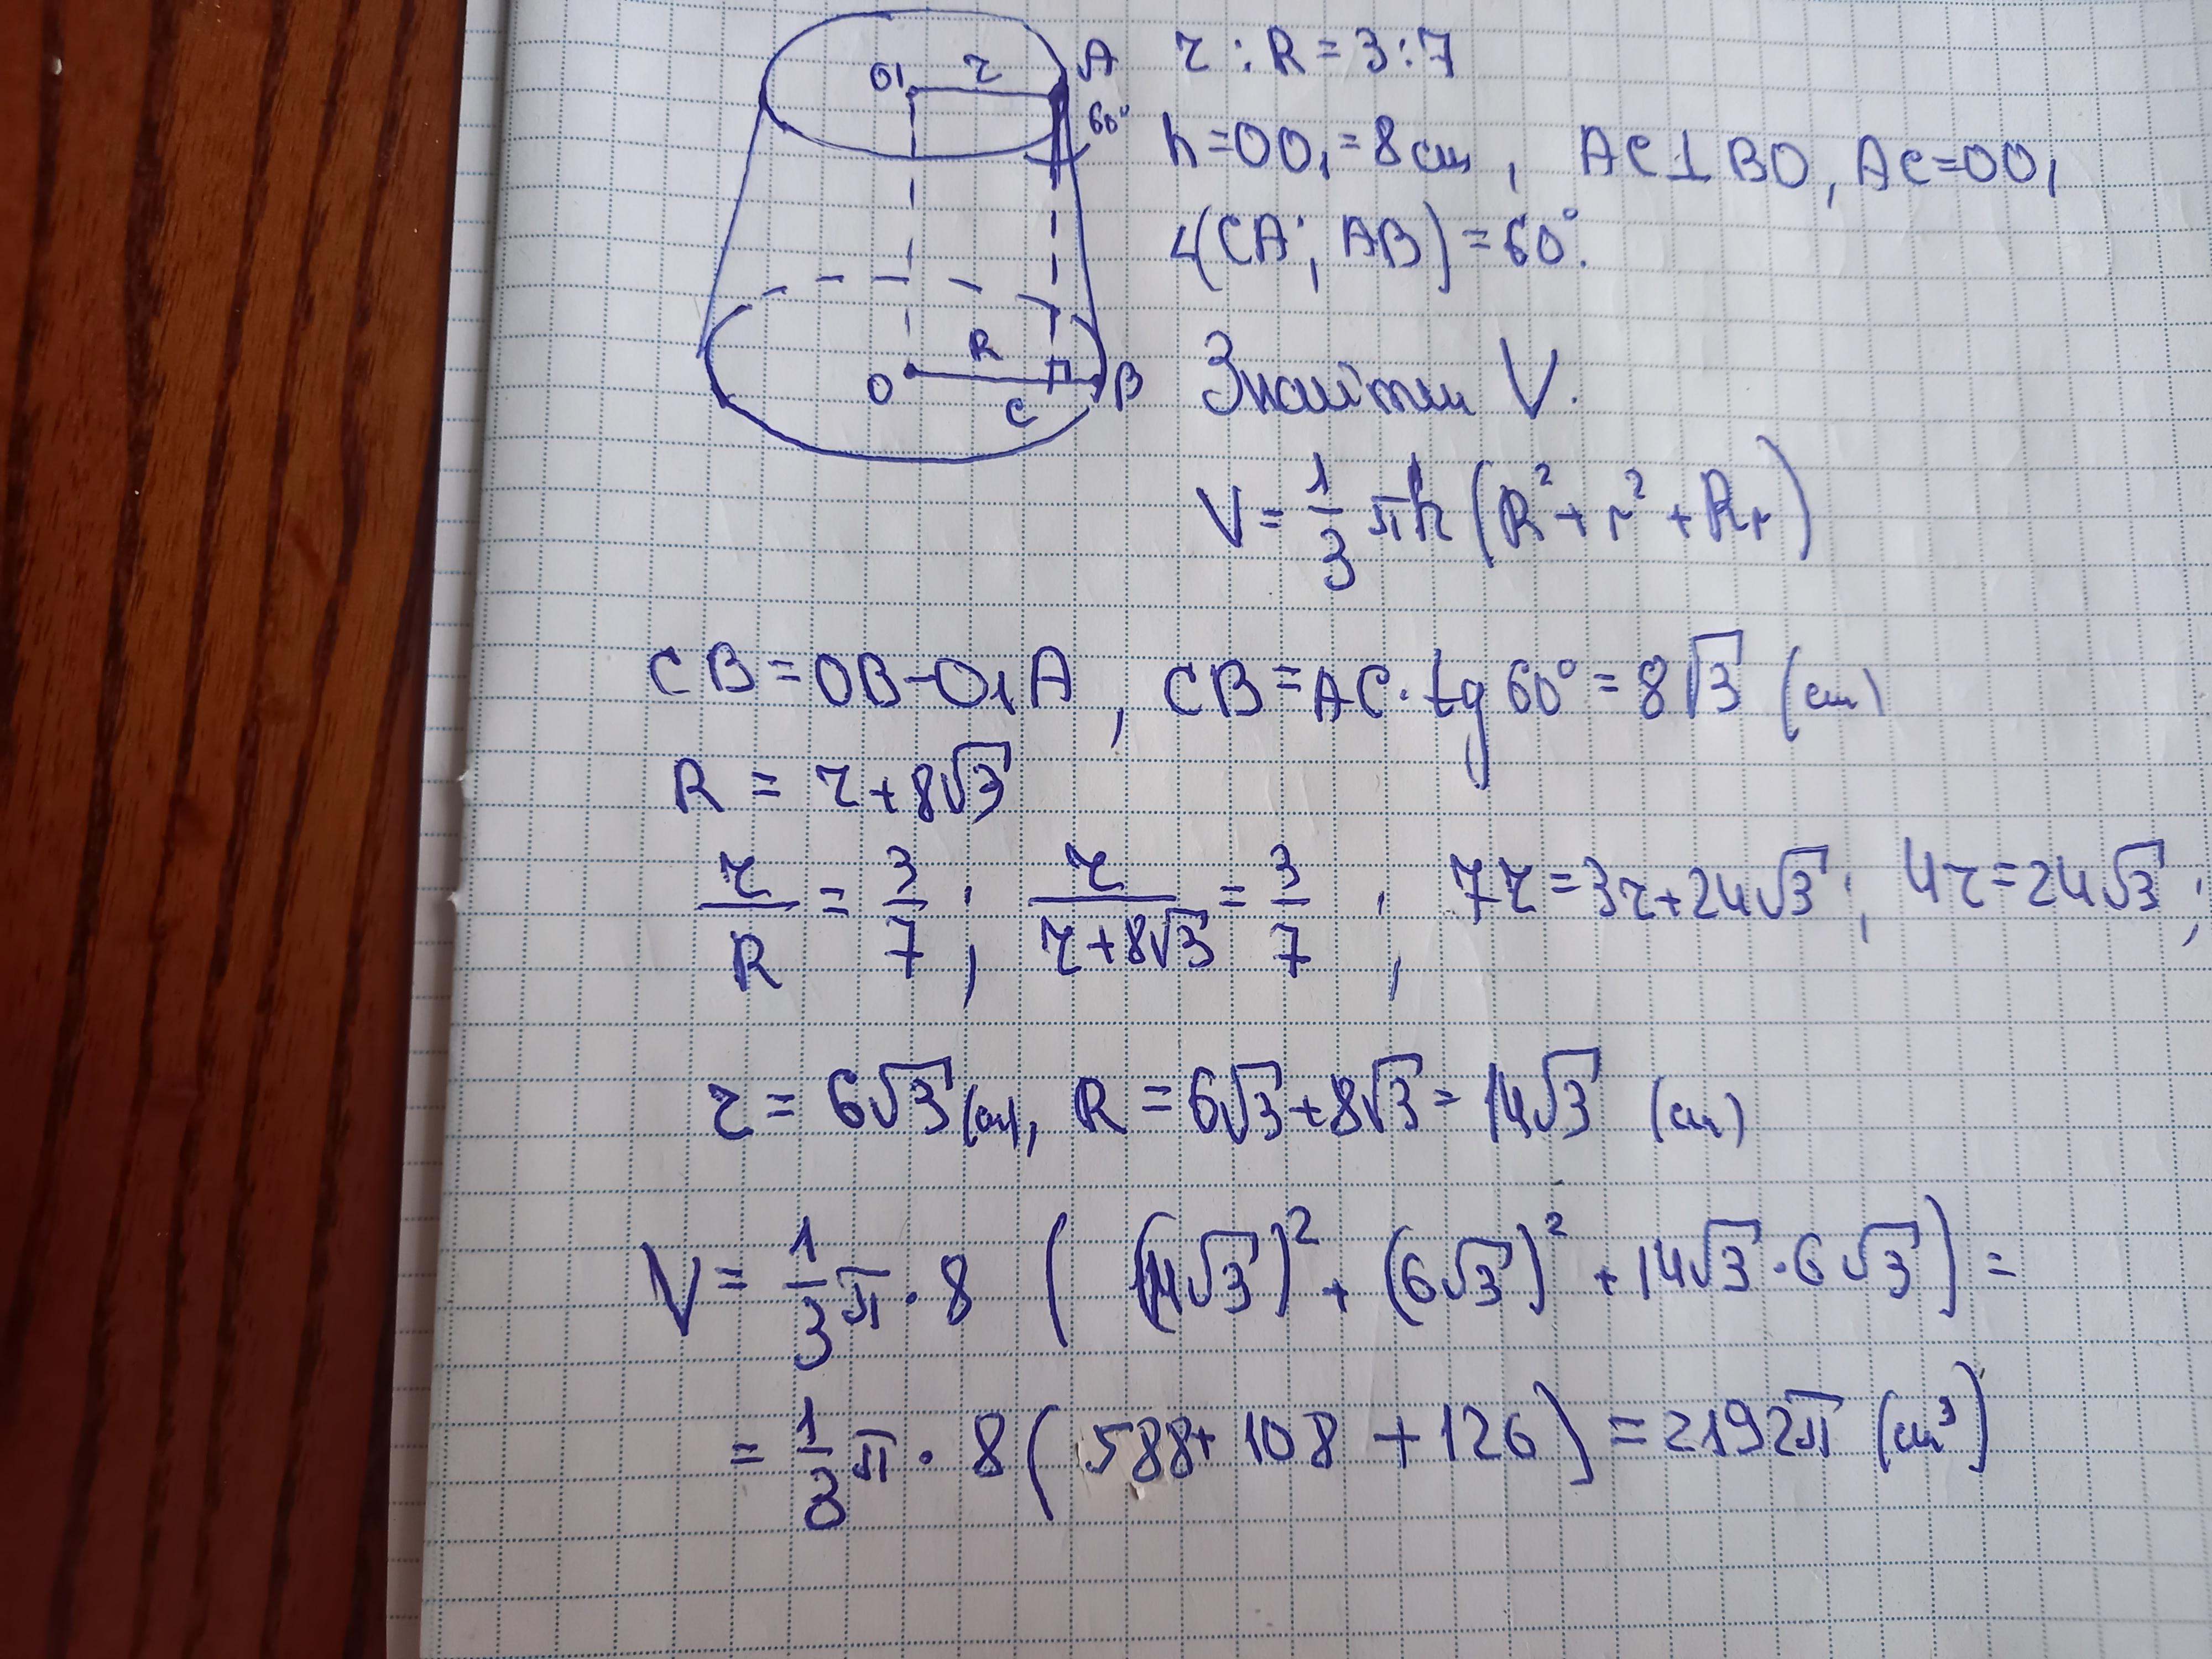 O₁ r A r : R = 3:7
60°
h=OO₁=8 см, AC⊥BO, AC=OO₁
∠(CA; AB)=60°.
R
O C B
Знайти V.
V = 1/3 πh (R² + r² + Rr)
CB=OB-O₁A, CB=AC·tg 60°=8√3 (см)
R = r+8√3
r/R = 3/7; r/(r+8√3) = 3/7; 7r=3r+24√3; 4r=24√3;
r = 6√3 (см), R = 6√3+8√3=14√3 (см)
V= 1/3 π·8 ( (14√3)² + (6√3)² + 14√3·6√3) =
= 1/3 π·8( 588+108+126)=2192π (см³)